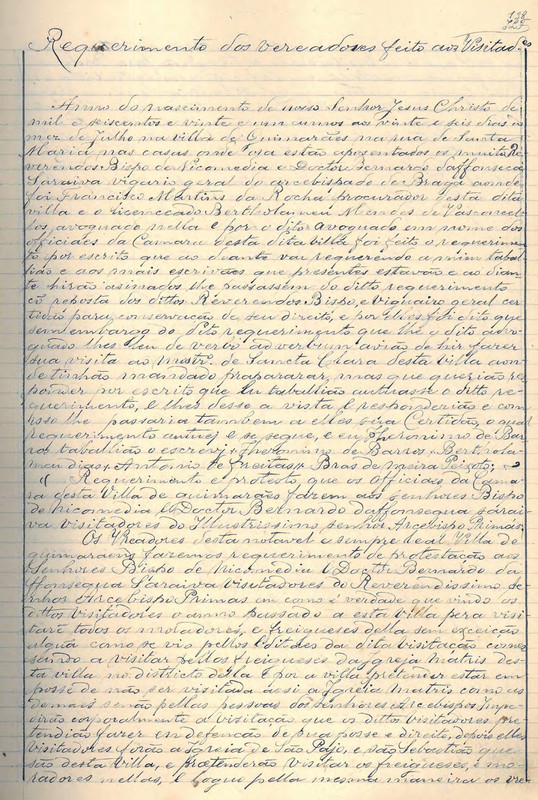 Requerimento dos vereadores feito aos Visitad.es
Anno do nascimento de nosso Senhor Jesus Christo de
mil e seiscentos e vinte e um annos aos vinte e seis dias do
mez de Julho na villa de Guimarães na rua de Santa
Maria nas casas onde oja estão apousentados os muito R
verendos Bispo de Nicomedia e Doctor Bernardo daffonseca
Saraiva vigario geral do arcebispado de Braga aonde
foi Francisco Martins da Rocha procurador desta dita
villa e o licenceado Bertholameu Mendes de Vasconcel
los avoguado nella e por o dito avoguado em nome dos
officiaes da Camara desta dita villa foi feito o requerimen
to por escrito que ao diante vai requerendo a mim tabal
lião e aos mais escrivães que presentes estavão e ao dian
te hirão asinados lhe passassem do ditto requerimento
cõ reposta dos dittos Reverendos Bispo, e Viguairo geral cer
tidão para conservação de seu direito, e por elles foi dito que
sem embargo do dito requerimento que lhe o dito avo
guado lhes leu de verbo ad verbum avião de hir fazer
sua visita ao mostr.º de Sancta Clara desta Villa aon
de tinhão mandado preparar, mas que querião res
ponder por escrito que eu taballião autuasse o ditto re
querimento, e lhes desse a vista e responderião e com
isso lhe passaria tambem a elles sua Certidão, o qual
requerimento autuej e se segue, e eu Jheronimo de Bar
ros taballião o escrevy Jheronimo de Barros Bertola
meu dias Antonio de Freitas Bras de Meira Peixoto;
" Requerimento e protesto que os Officiaes da Cama
ra desta Villa de guimarães fazem aos senhores Bispo
de Nicomedia e Doctor Bernardo daffonsequa sarai
va Visitadores do Illustrissimo senhor Arcebispo Primás;
Os Vreadores desta notavel e sempre leal Villa de
guimaraens fazemos requerimento de protestação aos
Senhores Bispo de Nicomedia e Doctor Bernardo da
ffonsequa Saraiva visitadores do Reverendissimo se
nhor Arcebispo Primas em como é verdade que vindo os
dittos Visitadores o anno passado a esta villa pera visi
tarē todos os moradores, e freigueses della sem exceição
algũa como se vio pellos Editaes da dita visitação come
sando a visitar pellos freigueses da Igreja matris des
ta villa no districto della e por a villa pretender estar em
posse de não ser visitada assi a Igreja matris como as
demais senão pellas pessoas dos senhores Arcebispos impe
dirão corporalmente a visitação que os dittos Visitadores pre
tendião fazer em defenção de sua posse e direito, depois elles
visitadores forão a igreja de São Pajo, e são Sebastião que
são desta Villa, e pretenderão visitar os freigueses, e mo
radores nellas, e logue pella mesma maneira os vre